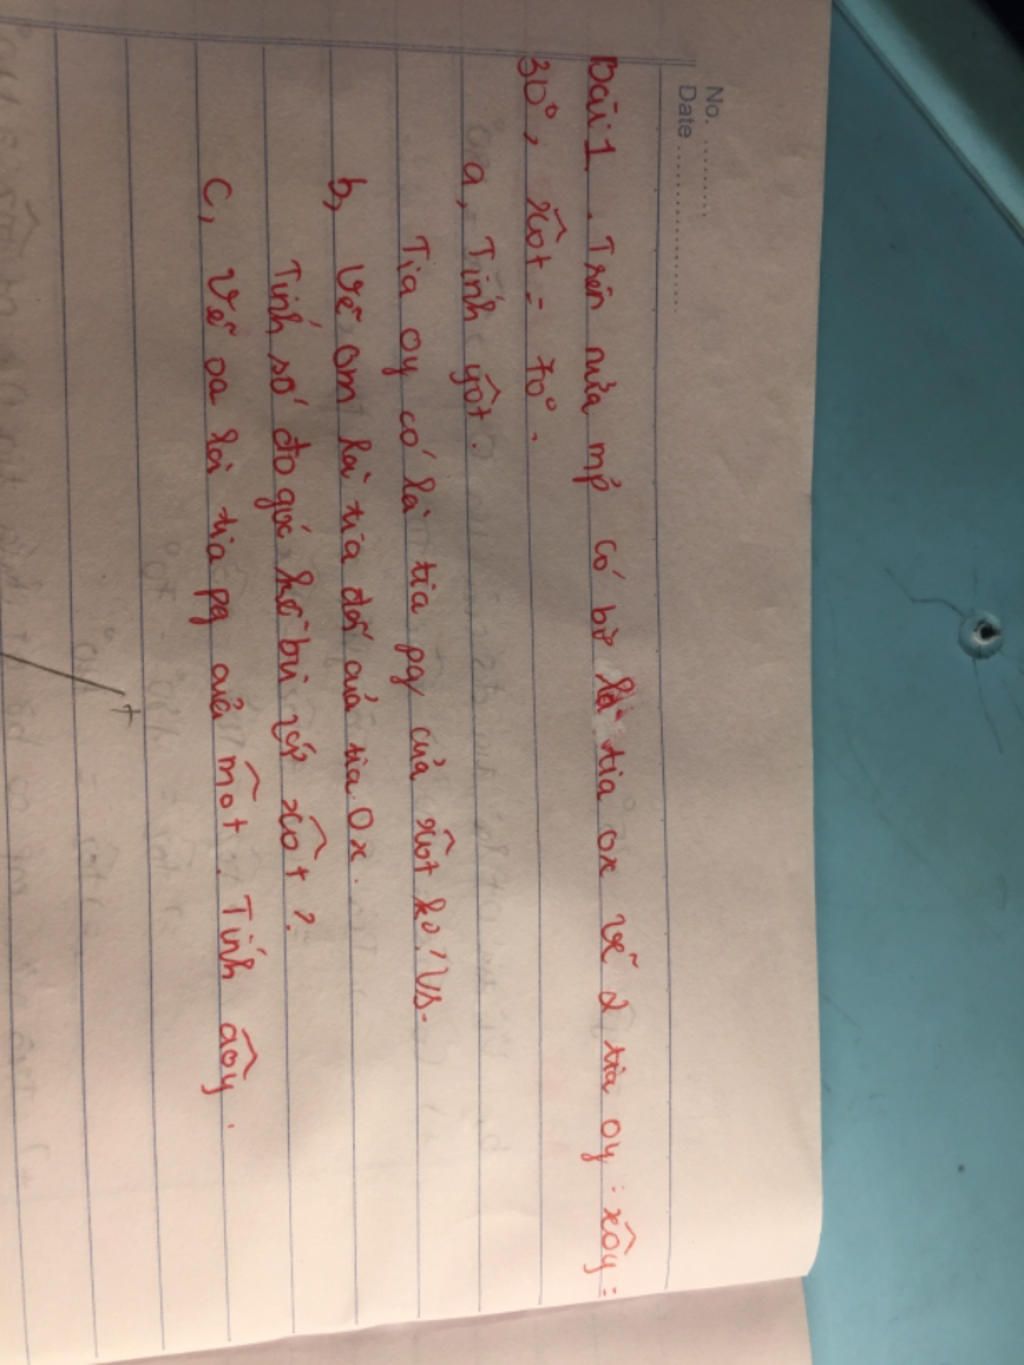 No. .........
Date ......................
Bài 1. Trên nửa mp có bờ là tia ox vẽ 2 tia oy : xôy =
30°, xôt = 70°.
a, Tính yôt.
Tia oy có là tia pg của xôt ko? Vs.
b, Vẽ om là tia đối của tia Ox.
Tính số đo góc kề bù với xôt?
c, Vẽ oa là tia pg của môt. Tính aôy.